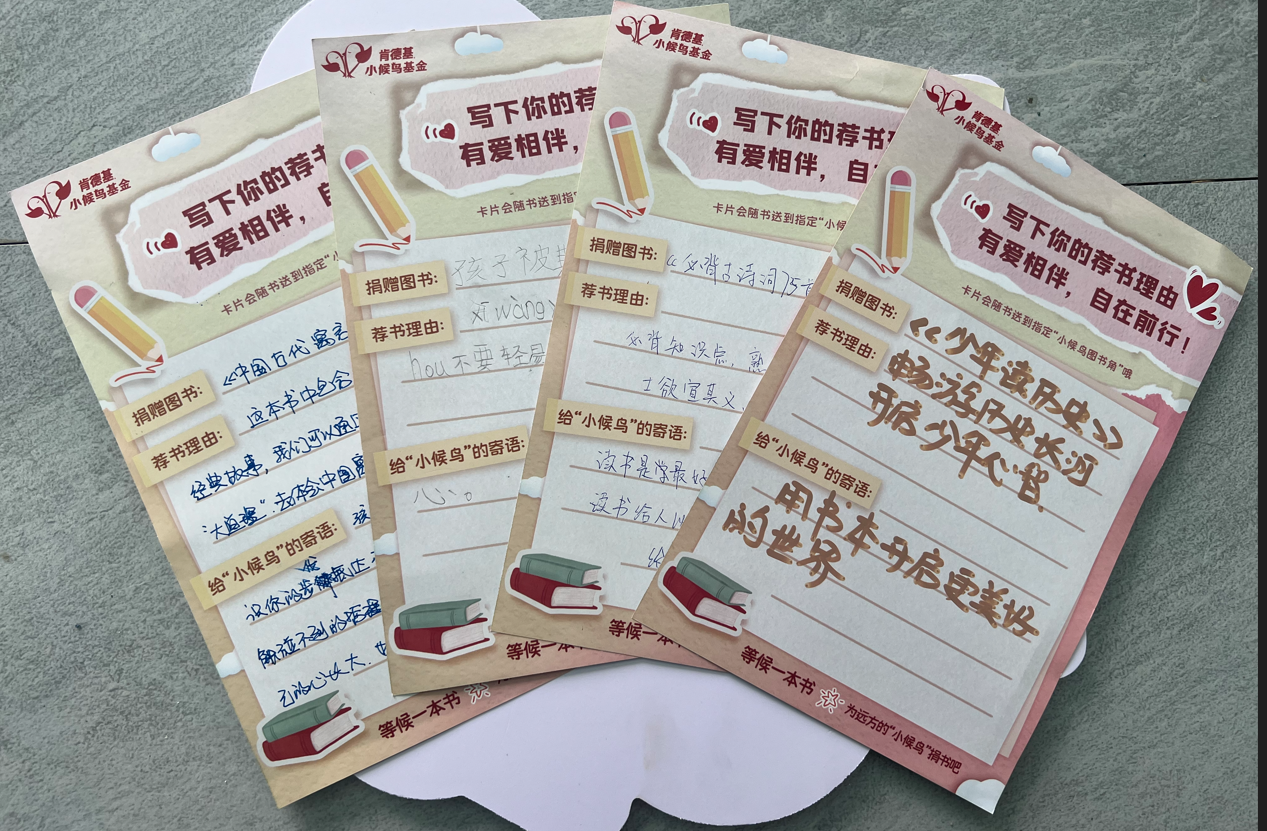 肯德基
小候鸟基金
写下你的荐书
有爱相伴，自
卡片会随书送到指定“小
捐赠图书：
《中国古代寓言
荐书理由：
这本书中包含
经典故事，我们可以通过
给“小候鸟”的寄语：
等候一本书
肯德基
小候鸟基金
写下你的荐
有爱相伴，
卡片会随书送到指定
捐赠图书：
孩子被
荐书理由：
xī wàng
hou 不要轻易
给“小候鸟”的寄语：
心。
等候一本书
肯德基
小候鸟基金
写下你的荐书
有爱相伴，自
卡片会随书送到指定“小候
捐赠图书：
《必背古诗词75首
荐书理由：
必背知识点，熟
士欲宣其义
给“小候鸟”的寄语：
读书是学最好
读书给人以
给
等候一本书
肯德基
小候鸟基金
写下你的荐书理由
有爱相伴，自在前行！
卡片会随书送到指定“小候鸟图书角”哦
捐赠图书：
《少年读历史》
荐书理由：
畅游历史长河
开启少年心智.
给“小候鸟”的寄语：
用书本开启更美好
的世界
等候一本书
为远方的“小候鸟”捐书吧